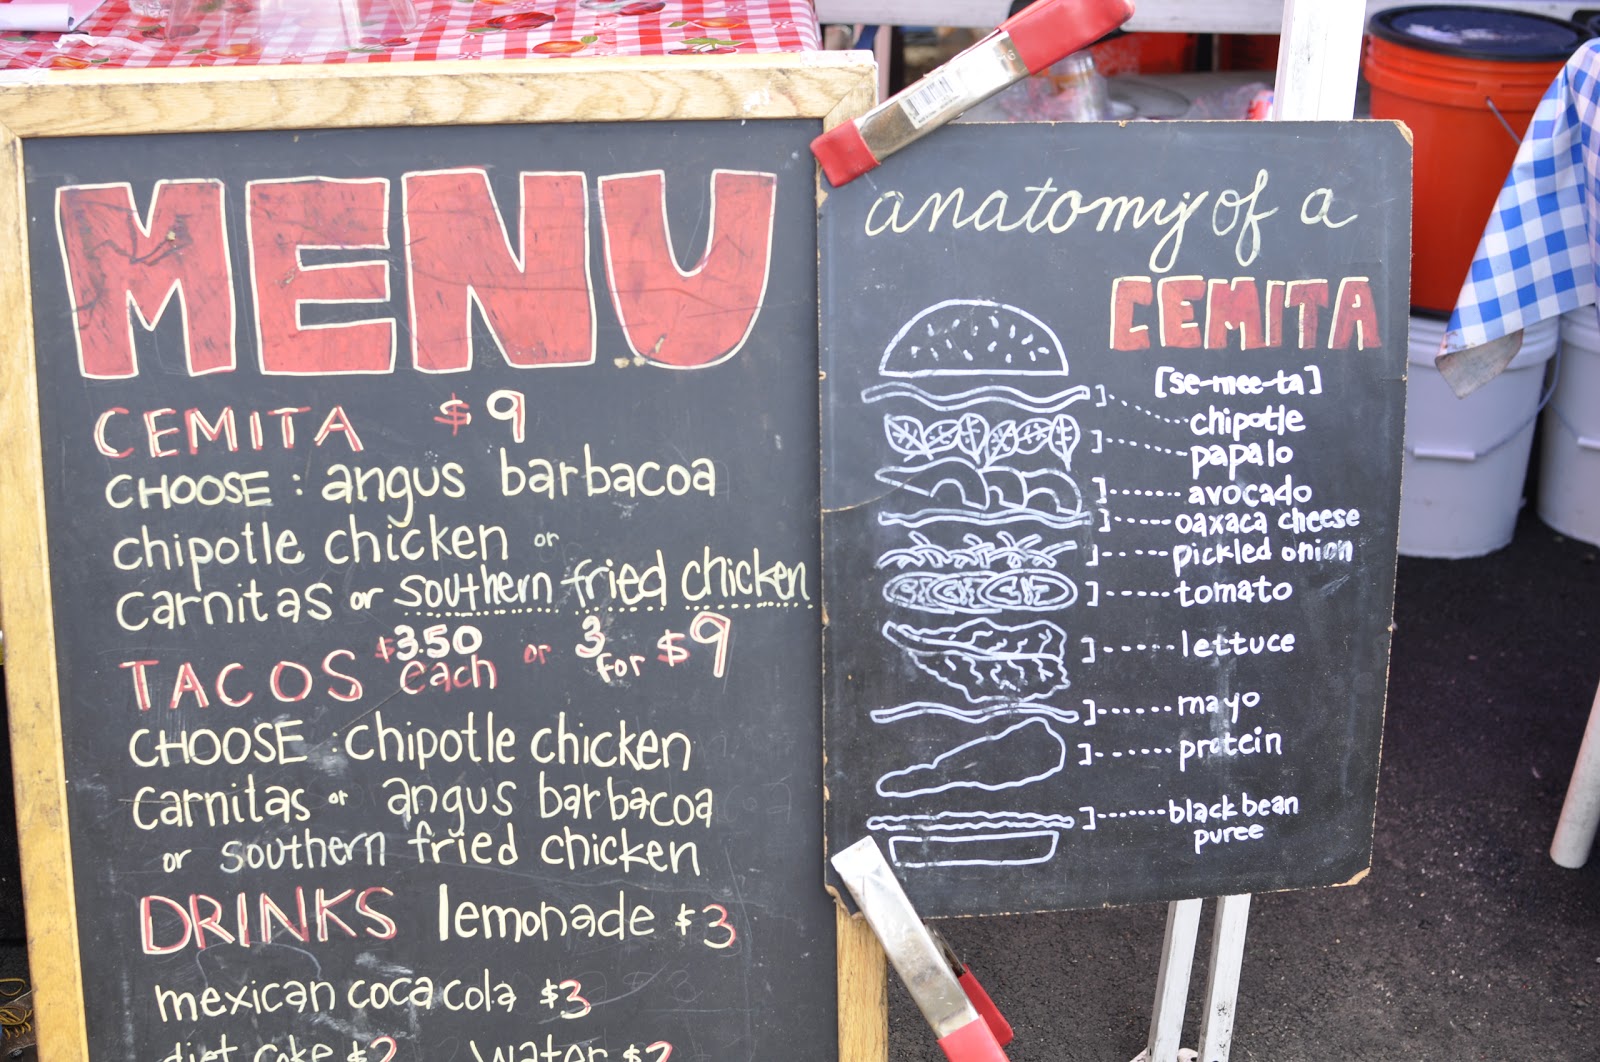 MENU
CEMITA $9
CHOOSE: angus barbacoa
chipotle chicken or
carnitas or southern fried chicken
TACOS $3.50 each or 3 for $9
CHOOSE: chipotle chicken
carnitas or angus barbacoa
or southern fried chicken
DRINKS lemonade $3
mexican coca cola $3
diet coke $2 water $2
anatomy of a
CEMITA
[se-mee-ta]
chipotle
papalo
avocado
oaxaca cheese
pickled onion
tomato
lettuce
mayo
protein
black bean
puree